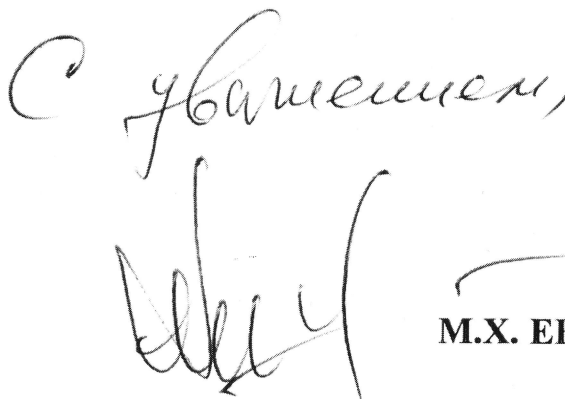 С уважением,
М.Х.